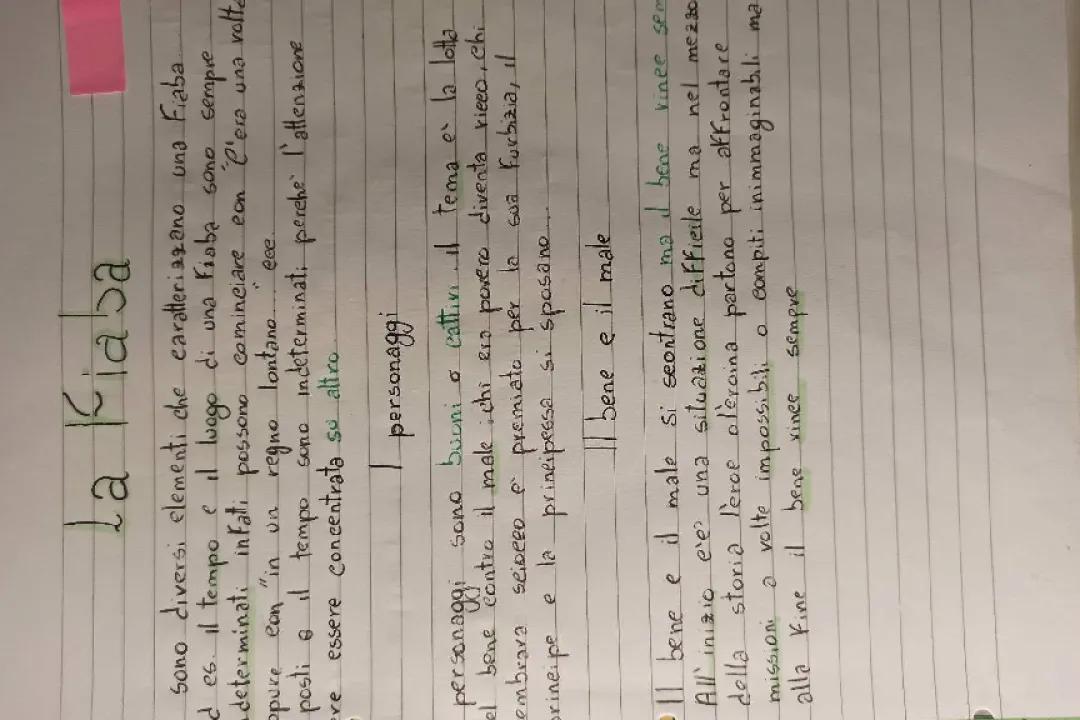 La Fiaba
sono diversi elementi che caratterizzano una Fiaba.
d es. il tempo e il luogo di una Fiaba sono sempre
ndeterminati infatti possono cominciare con "C'era una volta
ppure con "in un regno lontano..." ecc.
posti o il tempo sono indeterminati perchè l'attenzione
ve essere concentrata su altro.
I personaggi
personaggi sono buoni o cattivi. il tema è la lotta
el bene contro il male, chi era povero diventa ricco, chi
embrava sciocco è premiato per la sua furbizia, il
principe e la principessa si sposano...
Il bene e il male
Il bene e il male si scontrano ma il bene vince sem
All'inizio c'è una situazione difficile ma nel mezzo
della storia l'eroe o l'eroina partono per affrontare
missioni a volte impossibili o compiti inimmaginabili ma
alla fine il bene vince sempre